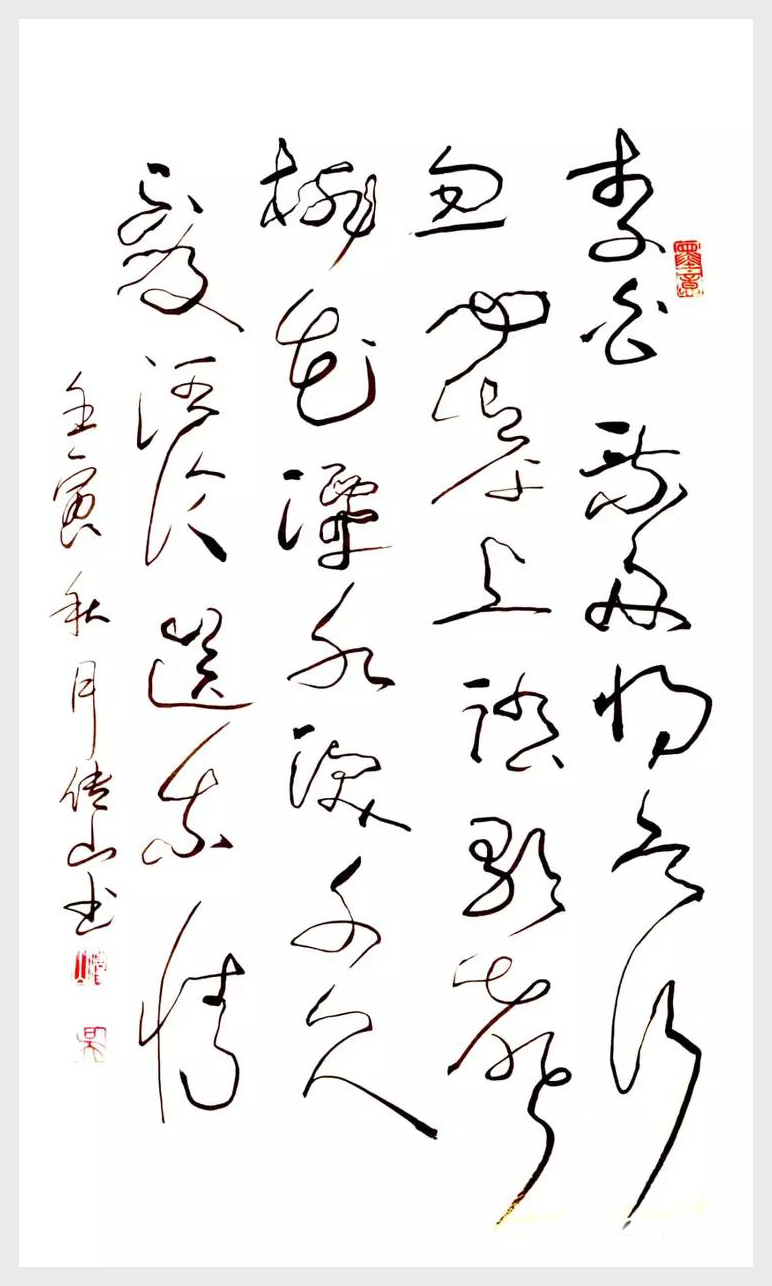 李白乘舟将欲行
忽闻岸上踏歌声
桃花潭水深千尺
不及汪伦送我情
壬寅秋月传山书